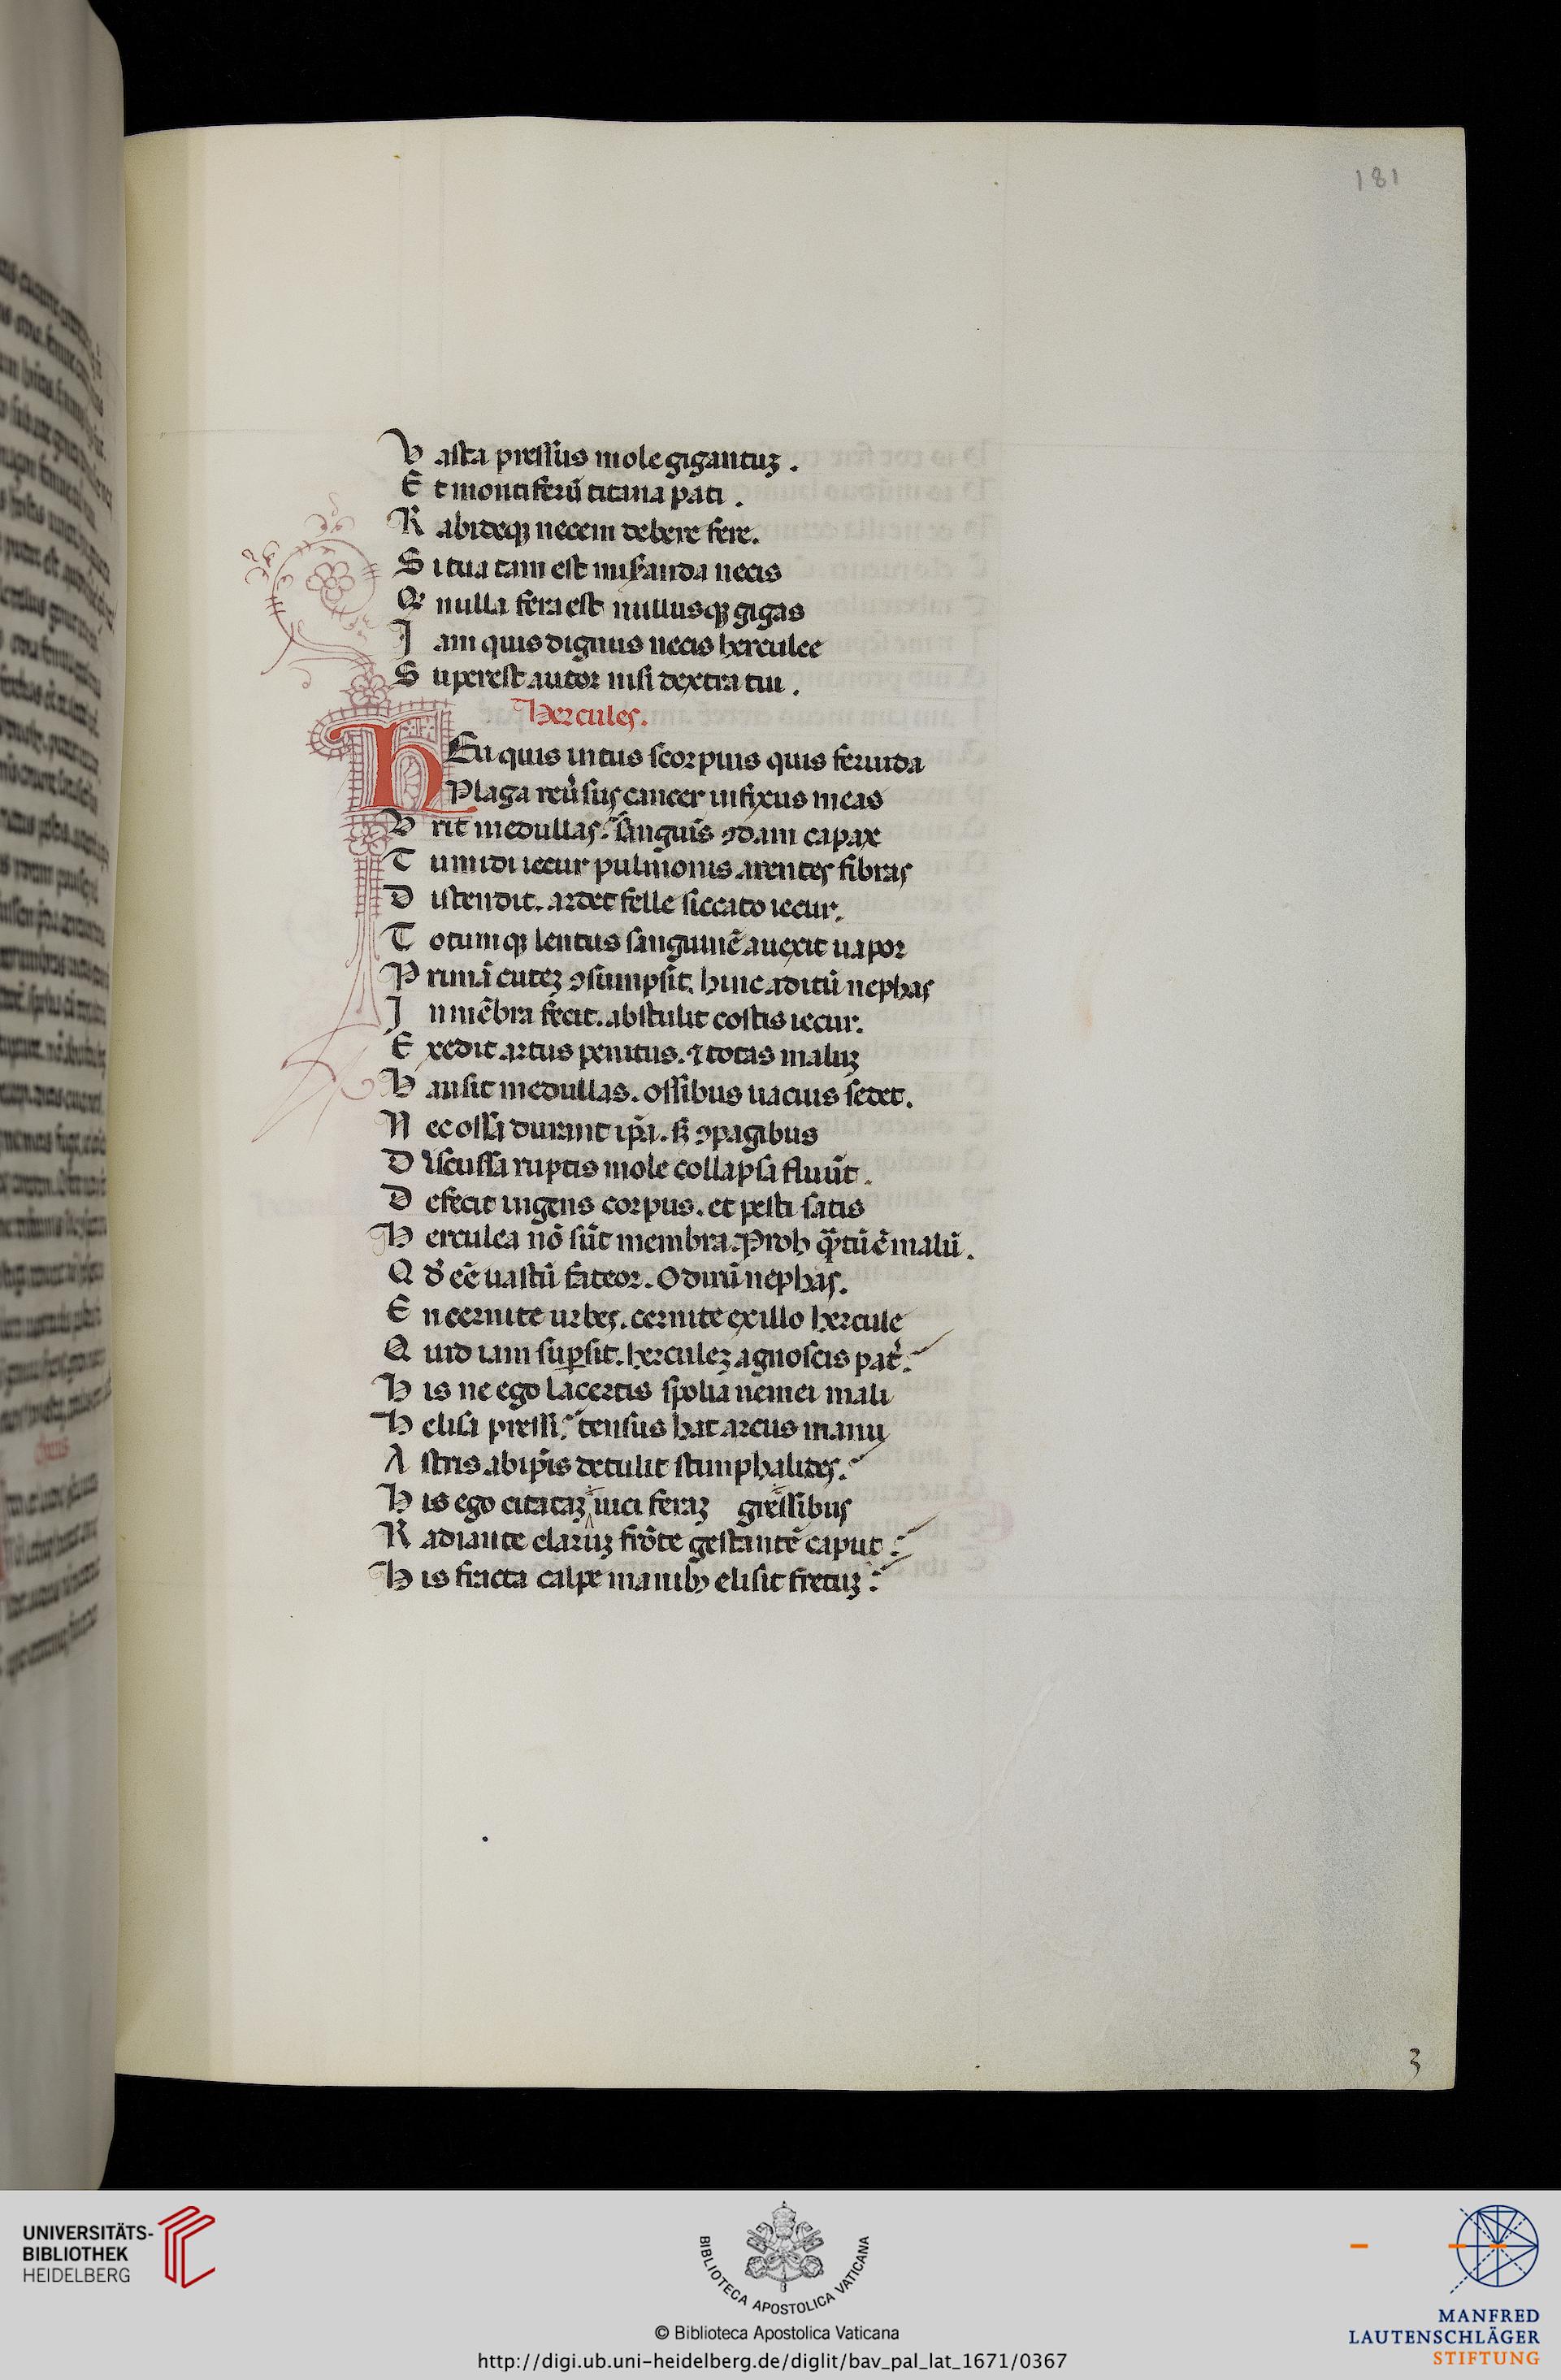 181
V asta pressus mole gigantuꝫ .
E t montiferū titana pati .
R abideqꝫ necem debere fere.
S i tua tam est miseranda necis
Q nulla fera est nullusqꝫ gigas
J am quis dignus necis herculee
S uperest autor nisi dextra tui .
Hercules.
HEu quis intus scorpius quis feruida
Plaga reu̾sus cancer infixus meas
V rit medullas. sanguīs ꝯdam capax
T umidi iecur pulmonis arentes fibras
D istendit. ardet felle siccato iecur.
T otumqꝫ lentus sanguinē auexit uapor
P rimā cuteꝫ ꝯsumpsit. hinc aditū nephas
J n mēbra fecit. abstulit costis iecur.
E xedit artus penitus. ⁊ totas maluꝫ
H ausit medullas. ossibus uacuis sedet.
N ec ossa durant ip̄a. sꝫ ꝯpagibus
D iscussa ruptis mole collapsa fluūt .
D efecit ingens corpus. et pesti satis
H erculea nō sūt membra. Proh qᷓtū ē malū .
Q d̾ eē uastū fateor. O dirū nephas.
E n cernite urbes. cernite ex illo hercule
Q uid iam suꝑsit. herculeꝫ agnoscis pat̾.
H is ne ego lacertis spolia nemei mali
H elisa pressi. tensus hac arcus manu
A stris ab ip̄is detulit stimphalides.
H is ego citataꝫ uici feraꝫ gressibus
R adiante claruꝫ frōte gestantē caput :
H is fracta calpe manibꝫ elisit fretuꝫ :
3
UNIVERSITÄTS-
BIBLIOTHEK
HEIDELBERG
BIBLIOTECA APOSTOLICA VATICANA
© Biblioteca Apostolica Vaticana
http://digi.ub.uni-heidelberg.de/diglit/bav_pal_lat_1671/0367
MANFRED
LAUTENSCHLÄGER
STIFTUNG